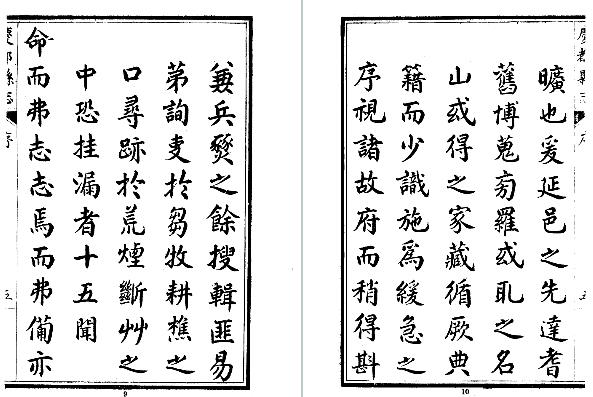 兼兵燹之餘搜輯匪易
苐詢叓於芻牧耕樵之
口尋跡於荒煙斷艸之
中恐挂漏者十五聞
命而弗志志焉而弗備亦
慶都縣志
序
五
9
慶都縣志
序
五
曠也爰延邑之先達耆
舊博蒐旁羅或耴之名
山或得之家藏循厥典
籍而少識施爲緩急之
序視諸故府而稍得斟
10